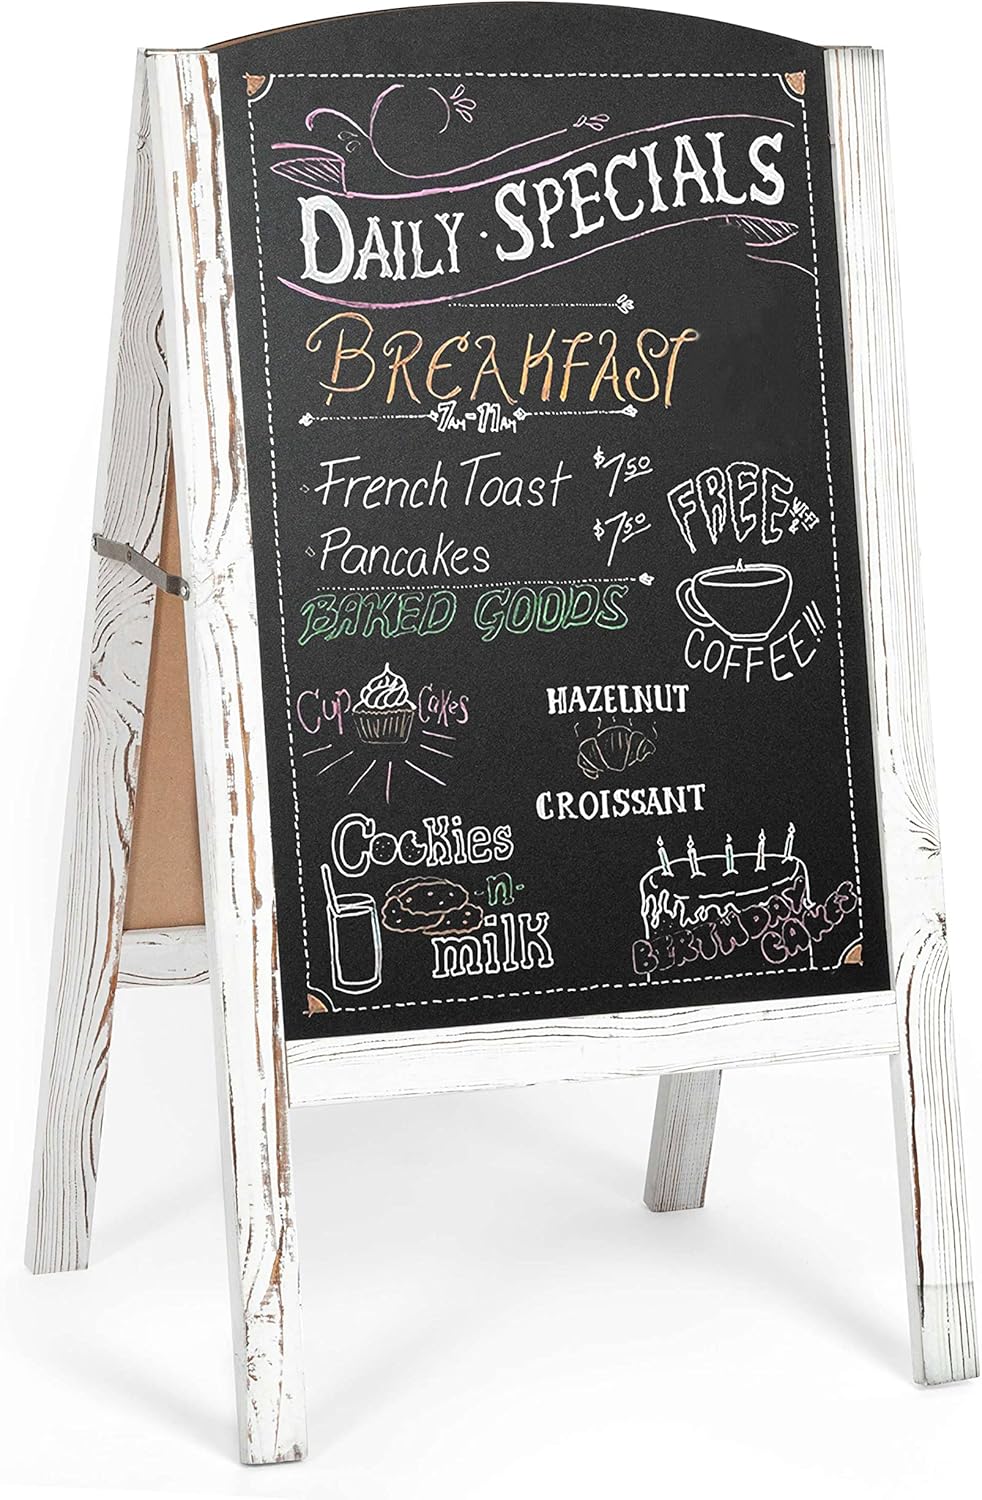 DAILY · SPECIALS
BREAKFAST
7AM-11AM
French Toast $7.50
Pancakes $7.50
FREE WI-FI &
COFFEE!!!
BAKED GOODS
Cup Cakes
HAZELNUT
CROISSANT
Cookies
-n-
milk
BIRTHDAY
CAKES